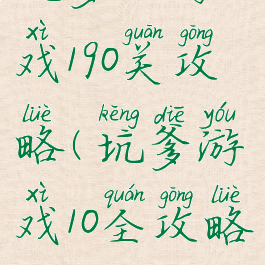 xì guān gōng
戏190关攻
lüè kēng diē yóu
略(坑爹游
xì quán gōng lüè
戏10全攻略